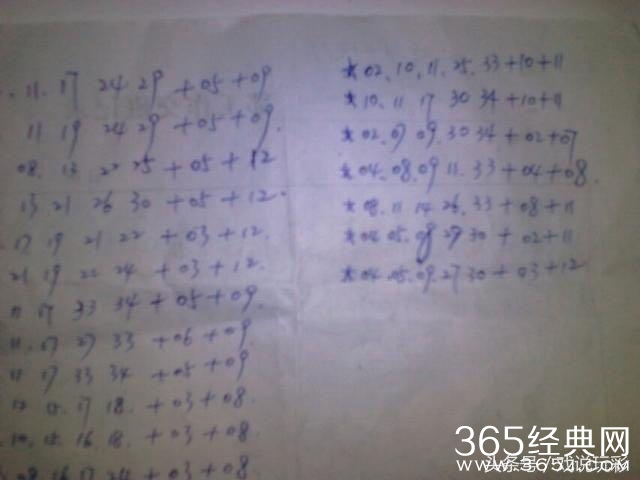 11. 17 24 29 +05+09
11 19 24 29 +05+09.
08. 13 22 25 +05+12
13 21 26 30 +05+12.
17 19 21 22 +03+12.
21 19 22 24 +03+12.
11 17 33 34 +05+09.
11. 17 27 33 +06+09.
11 17 33 34 +05+09
12 15. 17 18. +03+08.
10. 15. 16. 18. +03+08.
08 16 17 24 +03+08
★02. 10. 11. 25. 33+10+11
★10. 11 17 30 34+10+11
★02. 07 09. 30 34+02+07
★04. 08. 09 11. 33+04+08.
★08. 11 14 26. 33+08+11
★04 05. 08 27 30+02+11
★04. 05. 09. 27 30+03+12
365经典网
头条号/戏说玩彩
www.365zw.com